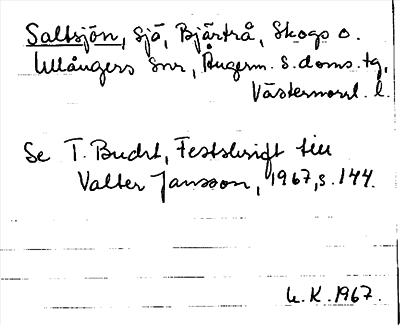 Saltsjön, sjö, Bjärtrå, Skogs o.
Ullångers snr, Ångerm. s. doms. tg,
Västernorrl. l.
Se T. Bucht, Festskrift till
Valter Jansson, 1967, s. 144.
L. K. 1967.